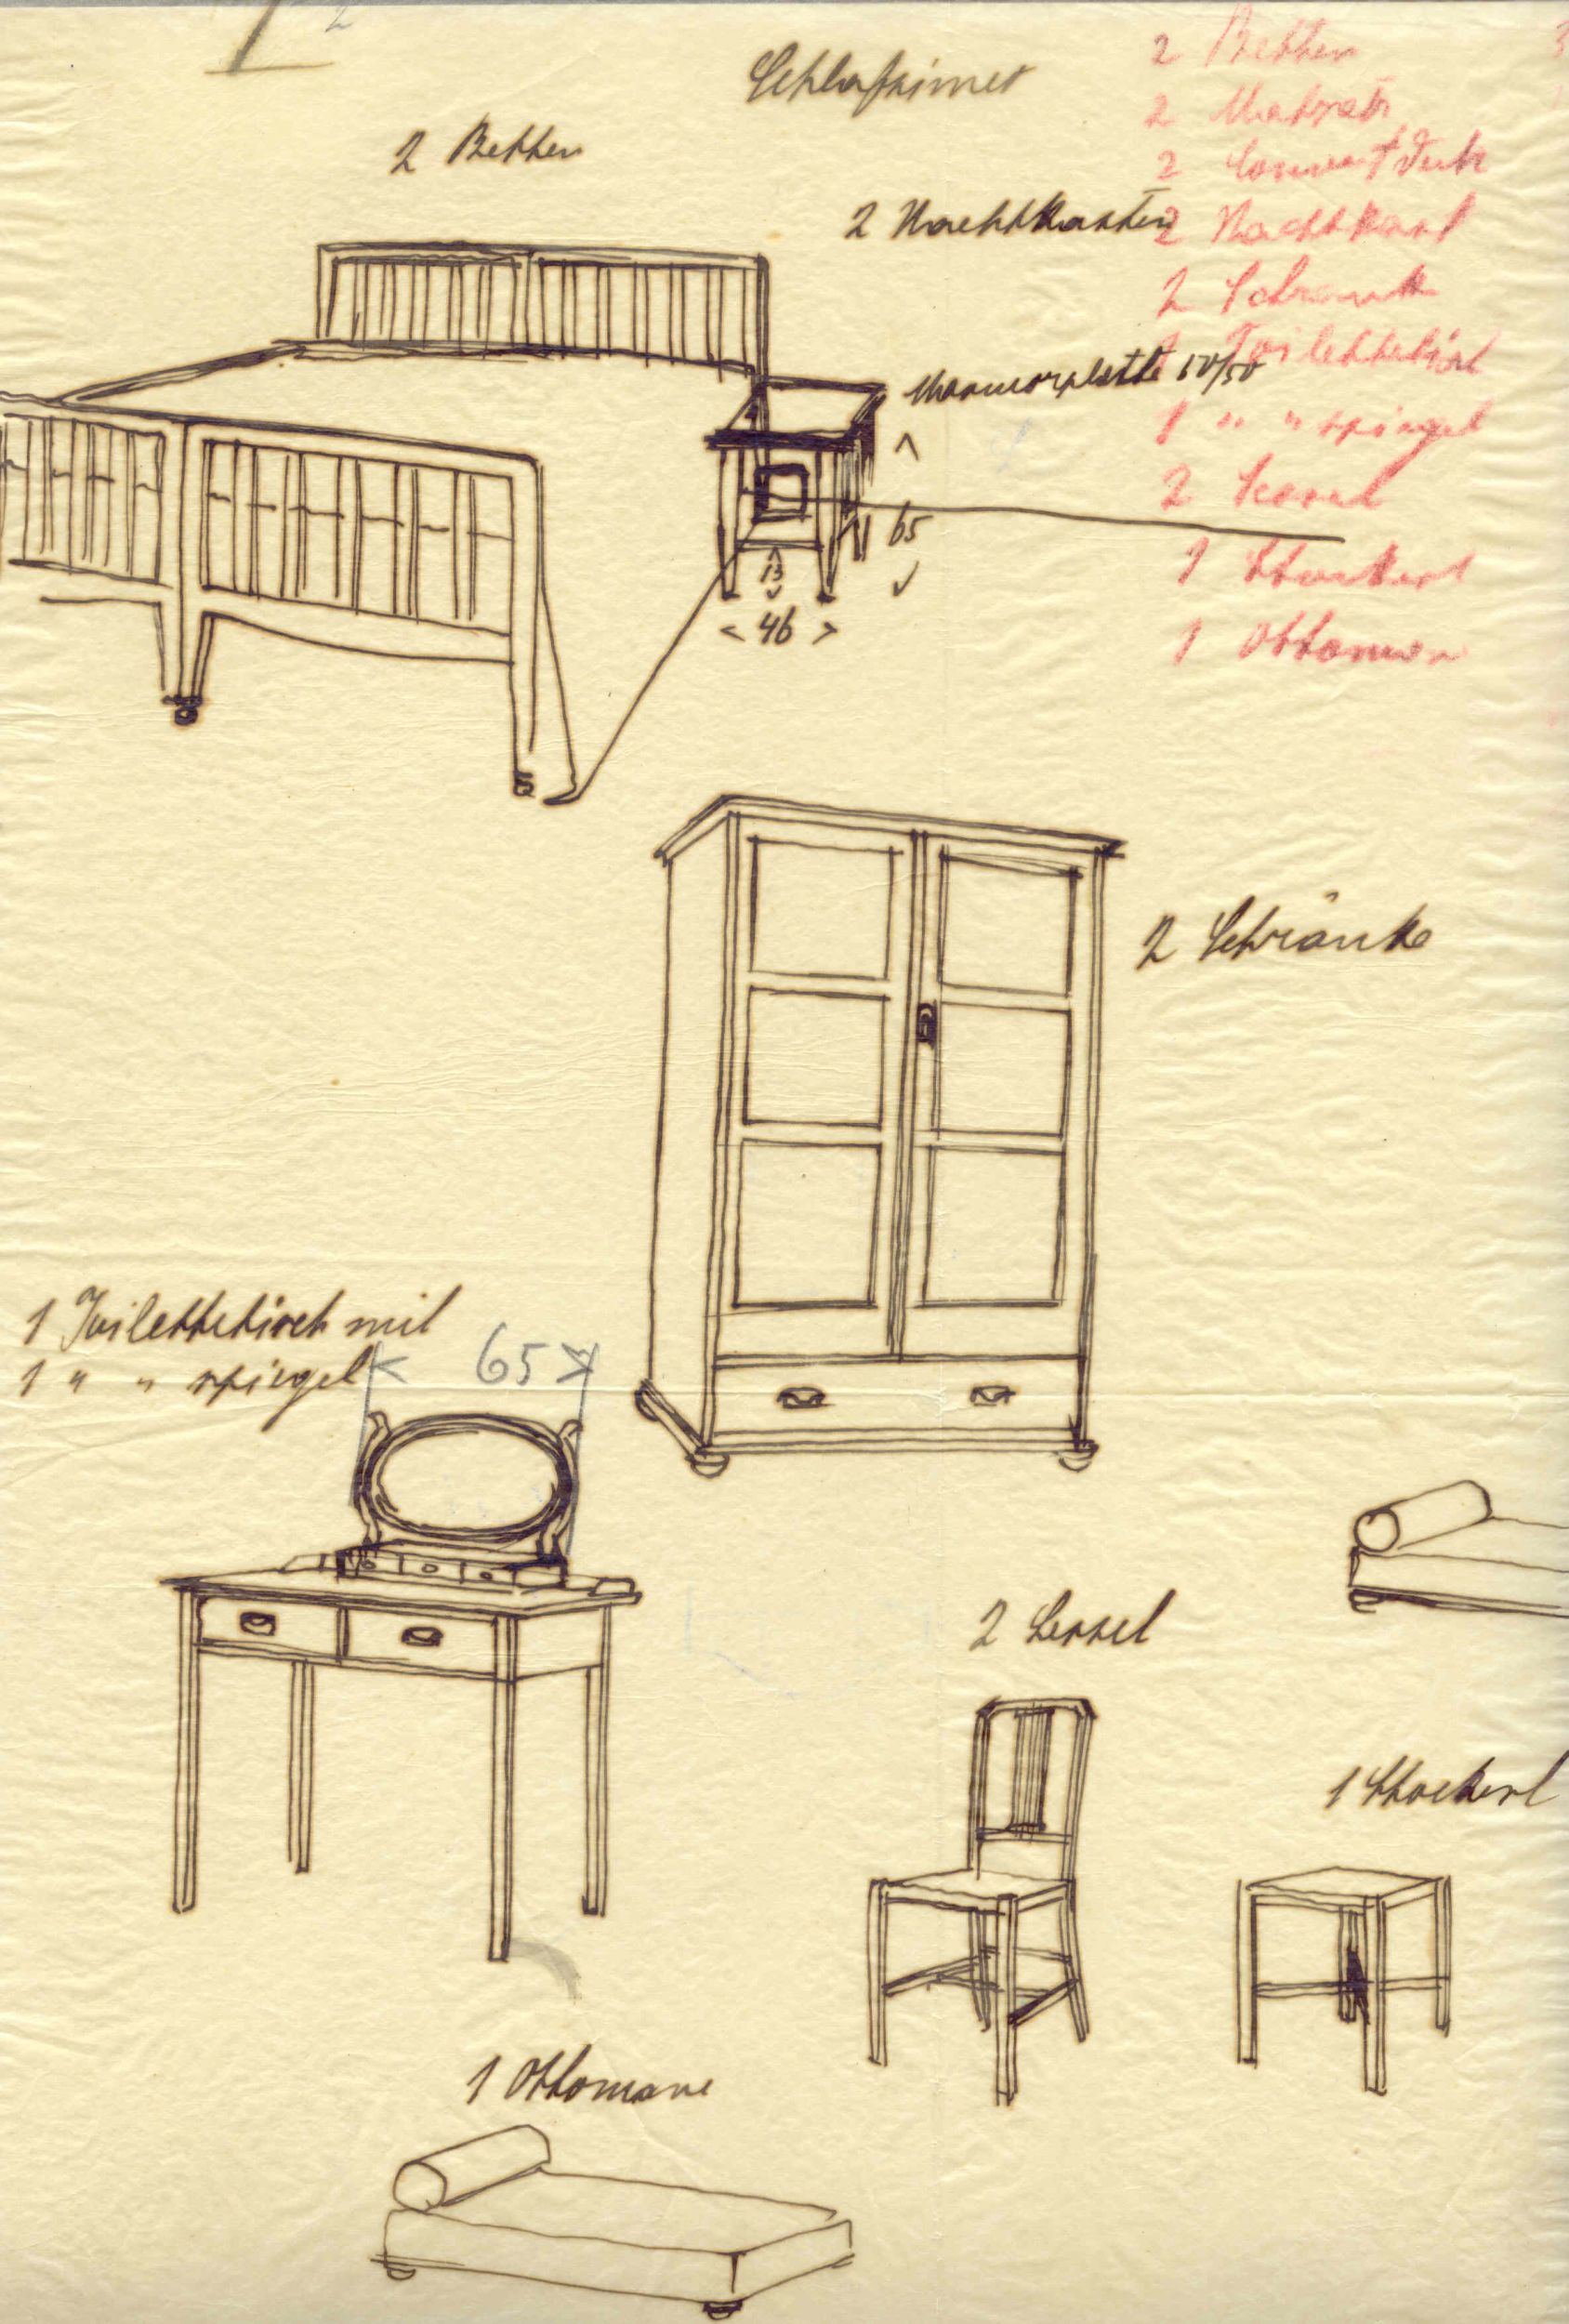 2
Schlafzimer
2 Betten
2 Nachtkasten
Marmorplatte 60/50
65
13
< 46 >
2 Betten
2 Matratz
2
2 Nachtkast
2 Schrank
1 Toilettetisch
1 " " spiegel
2 Sessel
1 Stockerl
1 Ottoman
2 Schränke
1 Toilettetisch mit
1 " " spiegel
65
2 Sessel
1 Stockerl
1 Ottomane